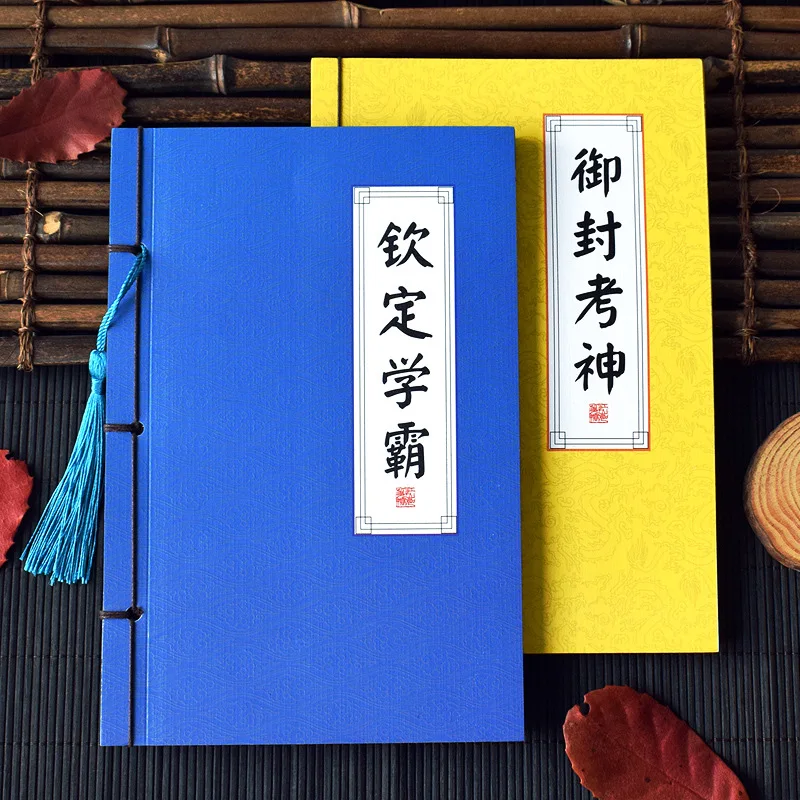 钦定学霸
御封考神